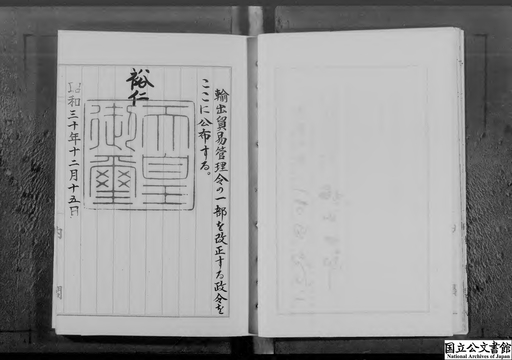 輸出貿易管理令の一部を改正する政令を
ここに公布する。
裕仁
天皇
御璽
昭和三十年十二月十五日
内閣
国立公文書館
National Archives of Japan